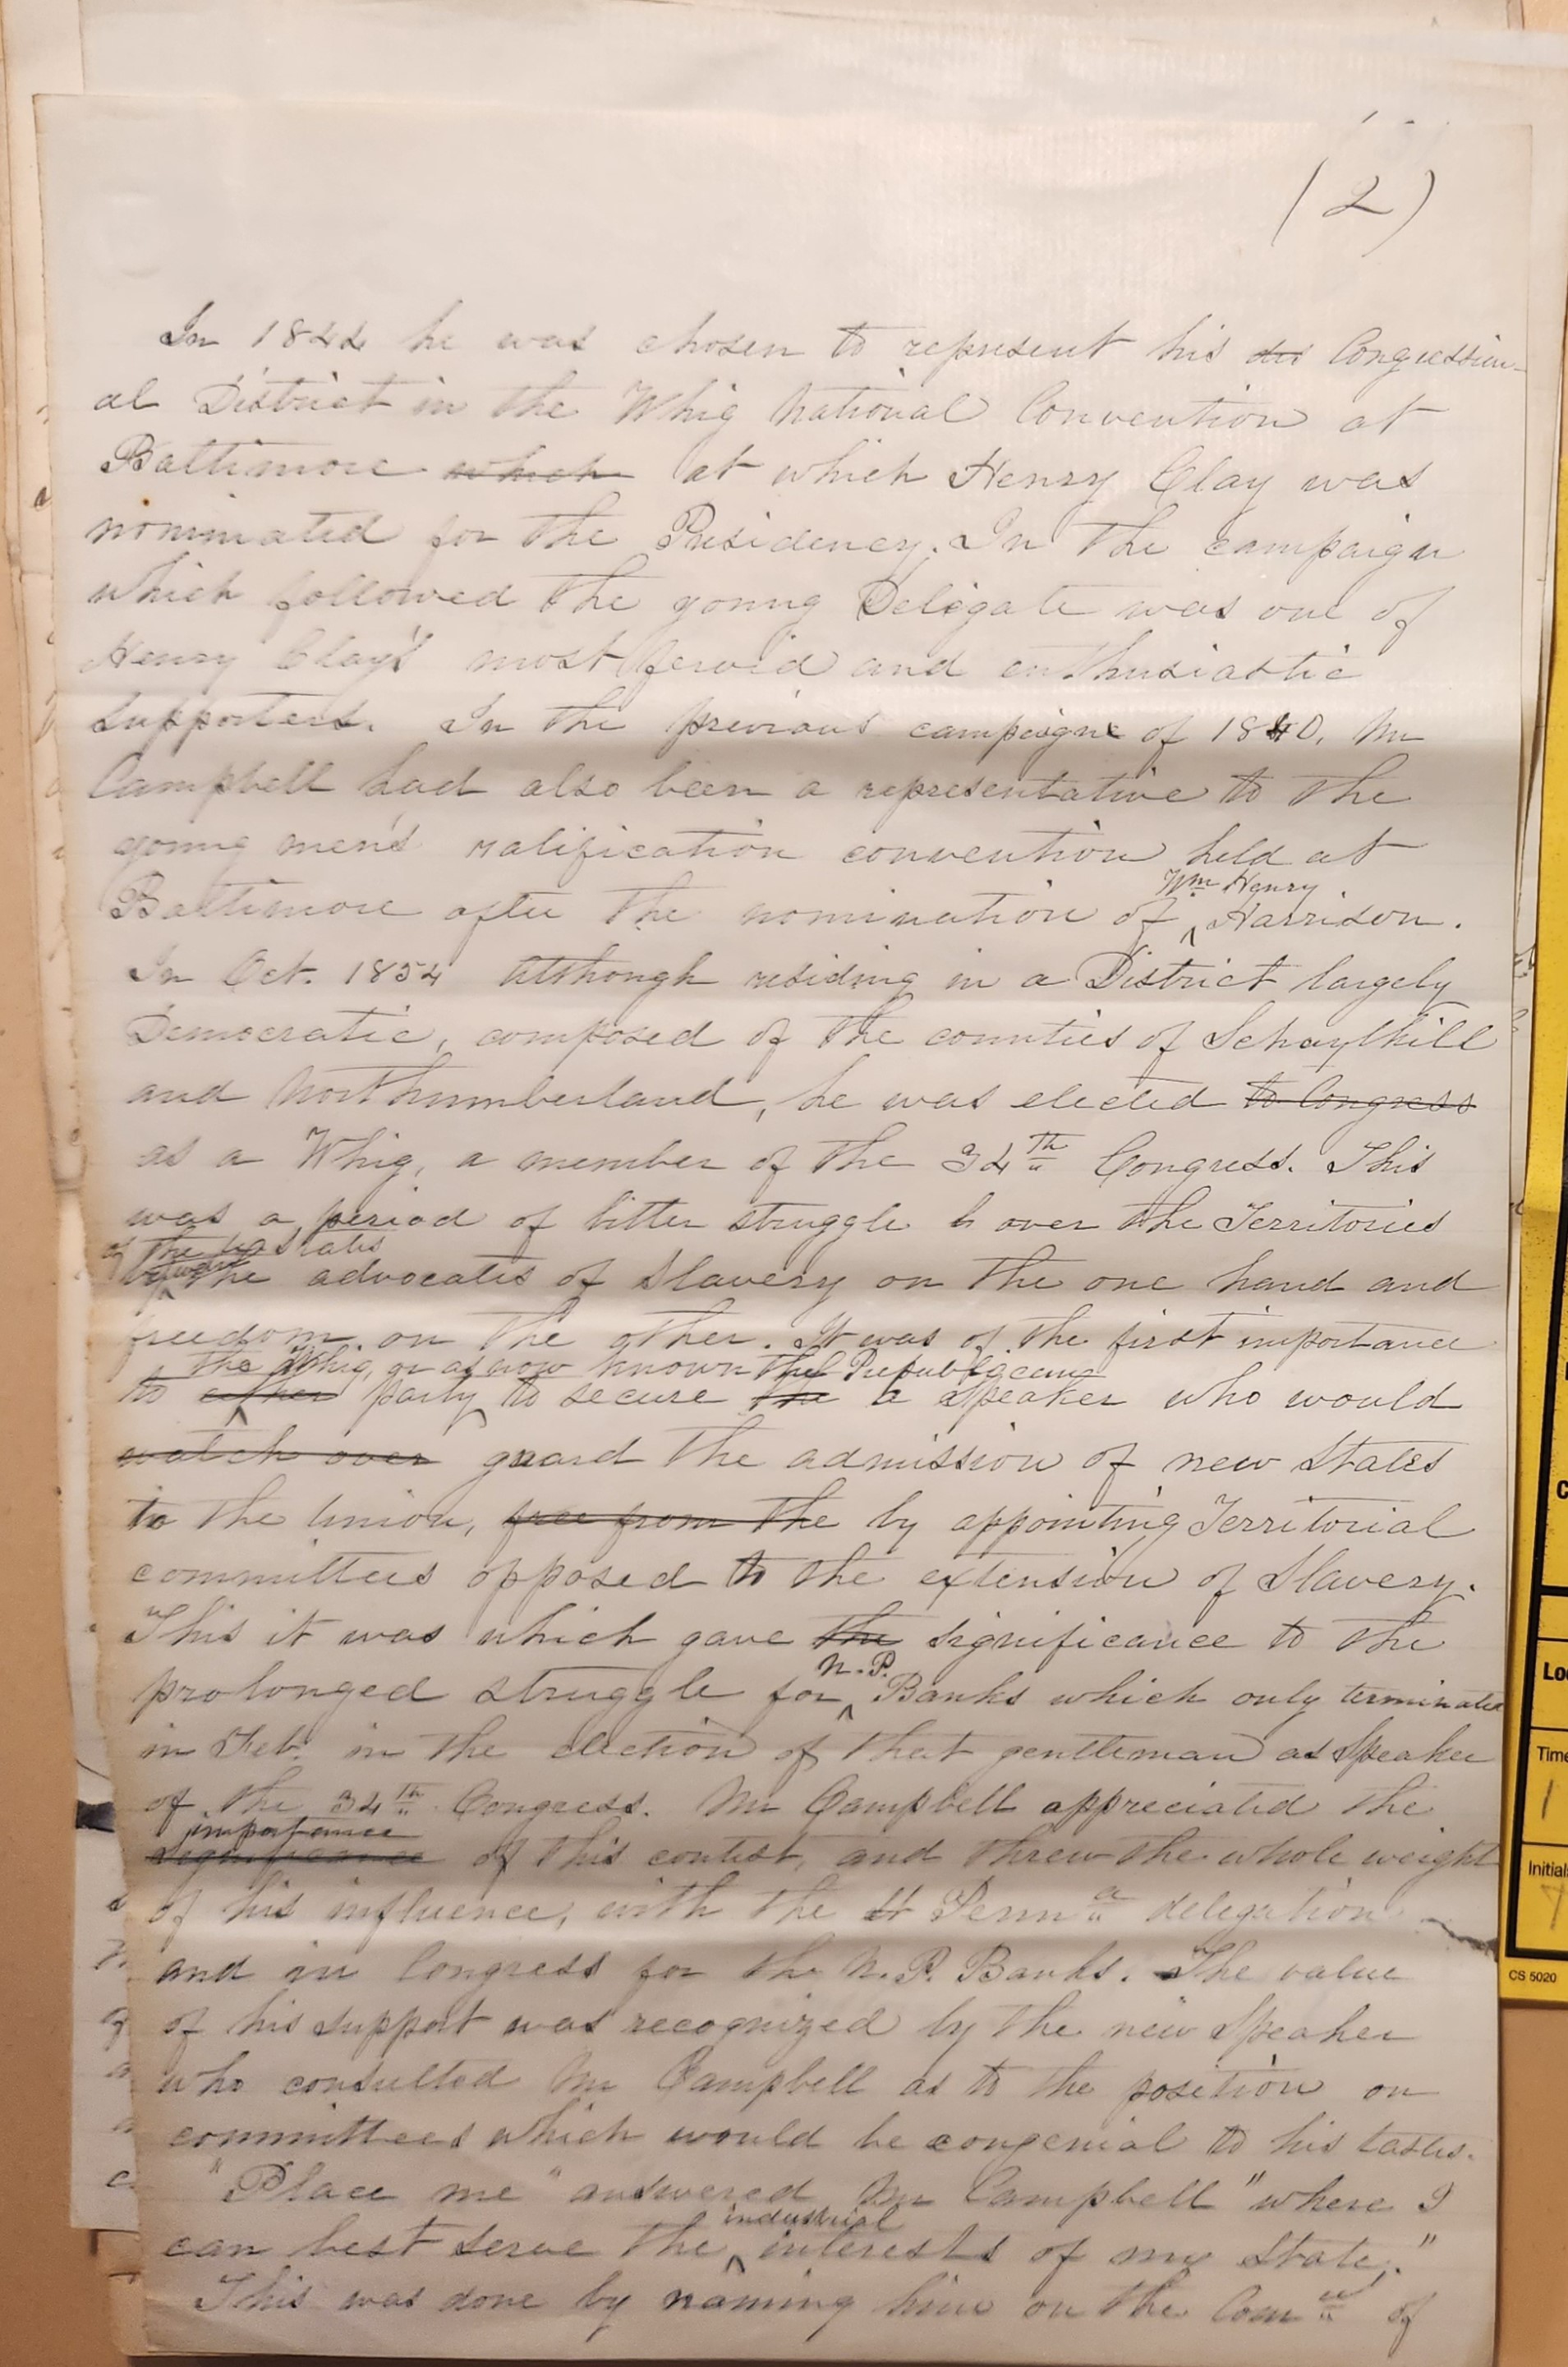 (2)
In 1844 he was chosen to represent his dis Congression-
al District in the Whig National Convention at
Baltimore which at which Henry Clay was
nominated for the Presidency. In the campaign
which followed the young Delegate was one of
Henry Clay's most fervid and enthusiastic
supporters. In the previous campaign of 1840, Mr
Campbell had also been a representative to the
young men's ratification convention held at
Wm Henry
Baltimore after the nomination of ‸ Harrison.
In Oct. 1854 although residing in a District largely
Democratic, composed of the counties of Schuylkill
and Northumberland, he was elected to Congress
as a Whig, a member of the 34th Congress. This
was a period of bitter struggle b over the Territories
of the
the advocates of Slavery on the one hand and
freedom on the other. It was of the first importance
the Whig, or as now known the Republican
to either party ‸ to secure the a Speaker who would
watch over guard the admission of new States
to the Union, free from the by appointing Territorial
committees opposed to the extension of Slavery.
This it was which gave the significance to the
N.P.
prolonged struggle for ‸ Banks which only terminated
in Feb. in the election of that gentleman as Speaker
of the 34th Congress. Mr Campbell appreciated the
importance
significance of this contest, and threw the whole weight
of his influence, with the Penna delegation
and in Congress for the N.P. Banks. The value
of his support was recognized by the new Speaker
who consulted Mr Campbell as to the position on
committees which would be congenial to his tastes.
"Place me" answered Mr Campbell "where I
industrial
can best serve the ‸ interests of my State."
This was done by naming him on the Comee of
Lo
Time
1
Initial
CS 5020